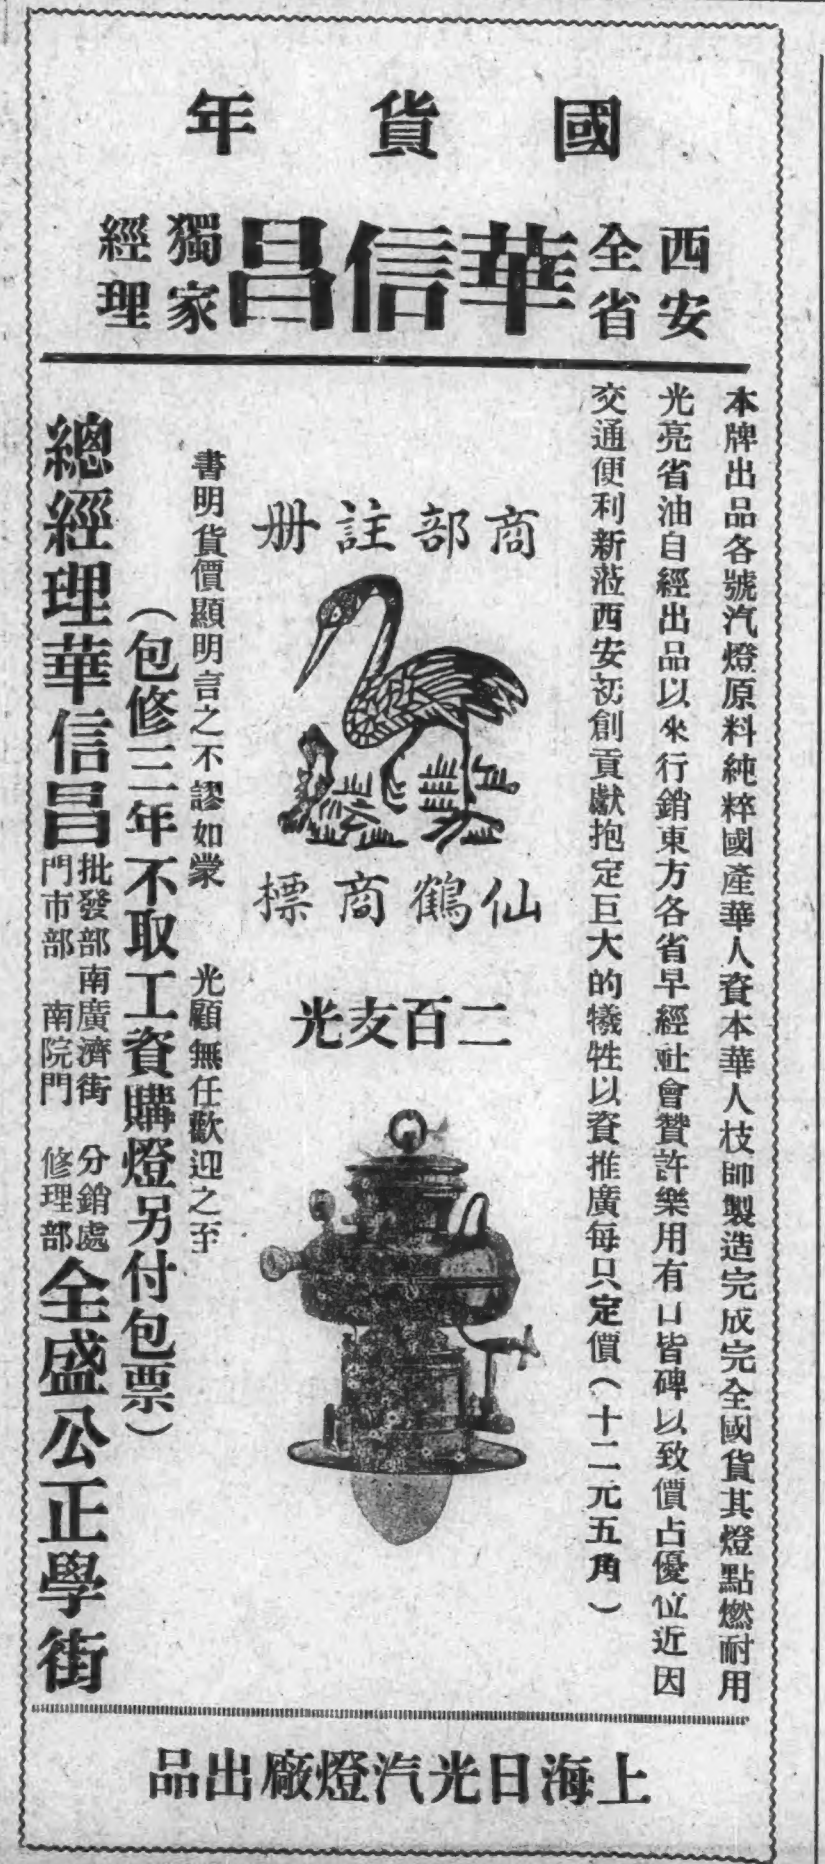 國貨年
西安
全省
華信昌
獨家
經理
本牌出品各號汽燈原料純粹國產華人資本華人技師製造完成完全國貨其燈點燃耐用
光亮省油自經出品以來行銷東方各省早經社會贊許樂用有口皆碑以致價占優位近因
交通便利新蒞西安初創貢獻抱定巨大的犧牲以資推廣每只定價(十二元五角)
商部註册
仙鶴商標
二百支光
書明貨價顯明言之不謬如蒙 光顧無任歡迎之至
(包修三年不取工資購燈另付包票)
總經理華信昌
批發部南廣濟街
門市部 南院門
分銷處
修理部
全盛公正學街
上海日光汽燈廠出品